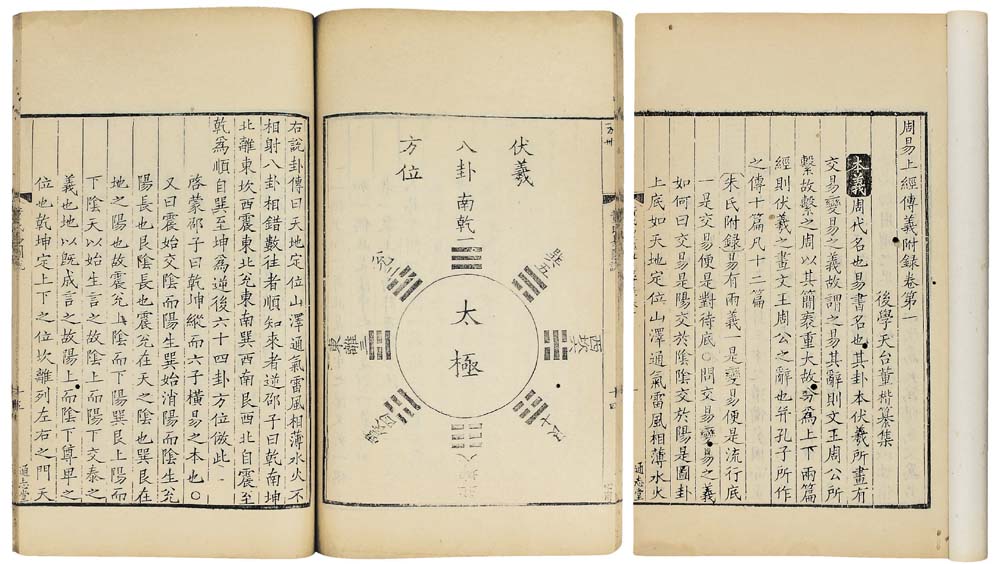 周易上經傳義附錄卷第一
後學天台董楷纂集
本義周代名也易書名也其卦本伏羲所畫有
交易變易之義故謂之易其辭則文王周公所
繫故繫之周以其簡袠重大故分為上下兩篇
經則伏羲之畫文王周公之辭也并孔子所作
之傳十篇凡十二篇
朱氏附錄易有兩義一是變易便是流行底
一是交易便是對待底○問交易變易之義
如何曰交易是陽交於陰陰交於陽是圖卦
上底如天地定位山澤通氣雷風相薄水火
通志堂
伏羲
八卦
方位
南乾一
巽五
兌二
太極
西坎六
東離三
艮七
右說卦傳曰天地定位山澤通氣雷風相薄水火不
相射八卦相錯數往者順知來者逆邵子曰乾南坤
北離東坎西震東北兌東南巽西南艮西北自震至
乾爲順自巽至坤爲逆後六十四卦方位倣此
啓蒙邵子曰乾坤縱而六子橫易之本也○
又曰震始交陰而陽生巽始消陽而陰生兌
陽長也艮陰長也震兌在天之陰也巽艮在
地之陽也故震兌上陰而下陽巽艮上陽而
下陰天以始生言之故陰上而陽下交泰之
義也地以既成言之故陽上而陰下尊卑之
位也乾坤定上下之位坎離列左右之門天
通志堂